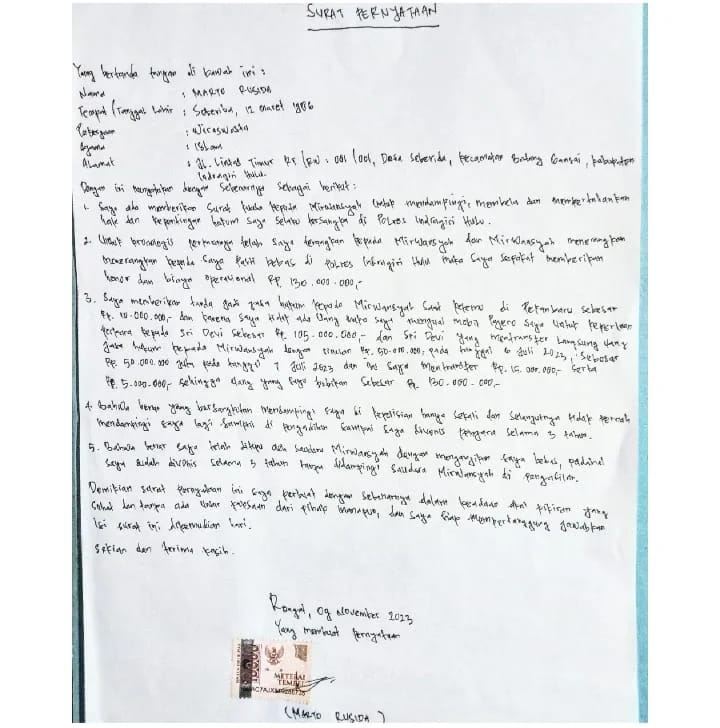 SURAT PERNYATAAN
Yang bertanda tangan di bawah ini :
Nama : MARTO RUSIDA
Tempat/Tanggal Lahir : Seberida, 12 Maret 1986
Pekerjaan : Wiraswasta
Agama : Islam
Alamat : Jl. Lintas Timur RT/RW : 001/001, Desa Seberida, Kecamatan Batang Gansal, Kabupaten
Indragiri Hulu.
Dengan ini menyatakan dengan sebenarnya sebagai berikut :
1. Saya ada memberikan Surat Kuasa kepada Mirwansyah untuk mendampingi, membela dan mempertahankan
hak dan kepentingan hukum saya selaku tersangka di Polres Indragiri Hulu.
2. Untuk kronologis perkaranya telah saya terangkan kepada Mirwansyah dan Mirwansyah menerangkan
menerangkan kepada saya pasti bebas di Polres Indragiri Hulu maka saya sepakat memberikan
honor dan biaya operasional Rp. 130.000.000,-
3. Saya memberikan tanda jadi jasa hukum kepada Mirwansyah saat ketemu di Pekanbaru sebesar
Rp. 10.000.000,- dan karena saya tidak ada uang maka saya menjual mobil Pajero saya untuk keperluan
perkara kepada Sri Devi sebesar Rp. 105.000.000,- dan Sri Devi yang mentransfer langsung uang
jasa hukum kepada Mirwansyah dengan rincian Rp. 50.000.000,- pada tanggal 6 Juli 2023, sebesar
Rp 50.000.000 juta pada tanggal 7 Juli 2023 dan saya mentransfer Rp. 15.000.000,- serta
Rp 5.000.000,- sehingga uang yang saya berikan sebesar Rp. 130.000.000,-
4. Bahwa benar yang bersangkutan mendampingi saya di kepolisian hanya sekali dan selanjutnya tidak pernah
mendampingi saya lagi sampai di pengadilan sampai saya divonis penjara selama 3 tahun.
5. Bahwa benar saya telah ditipu oleh saudara Mirwansyah dengan menjanjikan saya bebas, padahal
saya sudah divonis selama 3 tahun tanpa didampingi saudara Mirwansyah di pengadilan.
Demikian surat pernyataan ini saya perbuat dengan sebenarnya dalam keadaan akal pikiran yang
sehat dan tanpa ada unsur paksaan dari pihak manapun, dan saya siap mempertanggung jawabkan
isi surat ini dikemudian hari.
Sekian dan terima kasih.
Rengat, 09 November 2023
Yang membuat pernyataan
METERAI
TEMPEL
(MARTO RUSIDA)